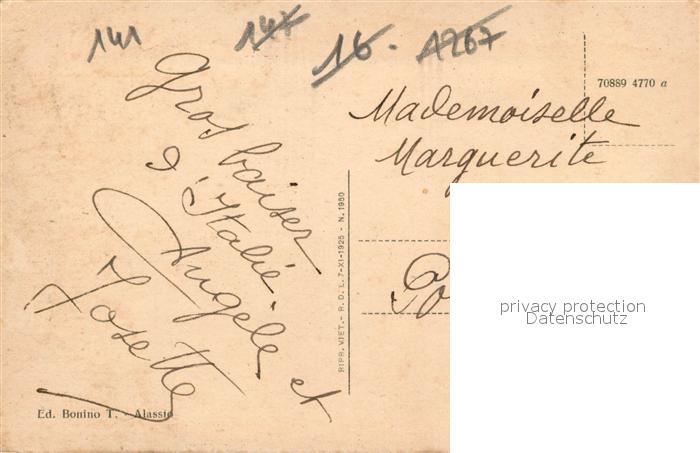 141
147
16.
1267
70889 4770 a
Mademoiselle
Marguerite
Gros baiser
d'Italie
Angèle et
Josette
RIPR. VIET. - R. D. L. 7-XI-1925 - N. 1950
privacy protection
Datenschutz
Ed. Bonino T. - Alassio